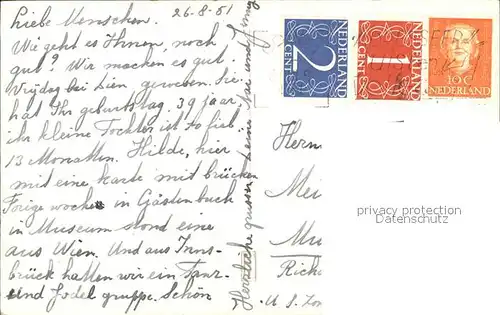 26-8-51
Liebe Menschen.
Wie geht es Ihnen, noch
gut? Wir machen es gut,
Vrijdag bei Lien gewesen. Sie
hat Ihr geburtstag. 39 jaar,
ihr kleine Tochter ist so lieb
13 Monatten. Hilde, hier
mit eine karte mit brücken
Forige woche in Gästenbuch
in Museum stond eine
aus Wien. Und aus Inns-
brück hatten wir ein Tanz-
und Jodel gruppe. Schön
Herzliche grussen
2 CENT
NEDERLAND
1 CENT
NEDERLAND
10 c
NEDERLAND
Herrn
Mei
Mu
Richa
U.S. Zon
privacy protection
Datenschutz